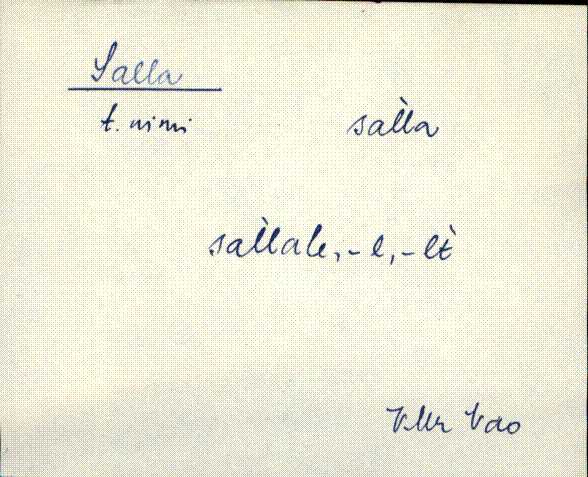 Salla
t. nimi sàlla
sàllale, -l, -lt
VMr Vao